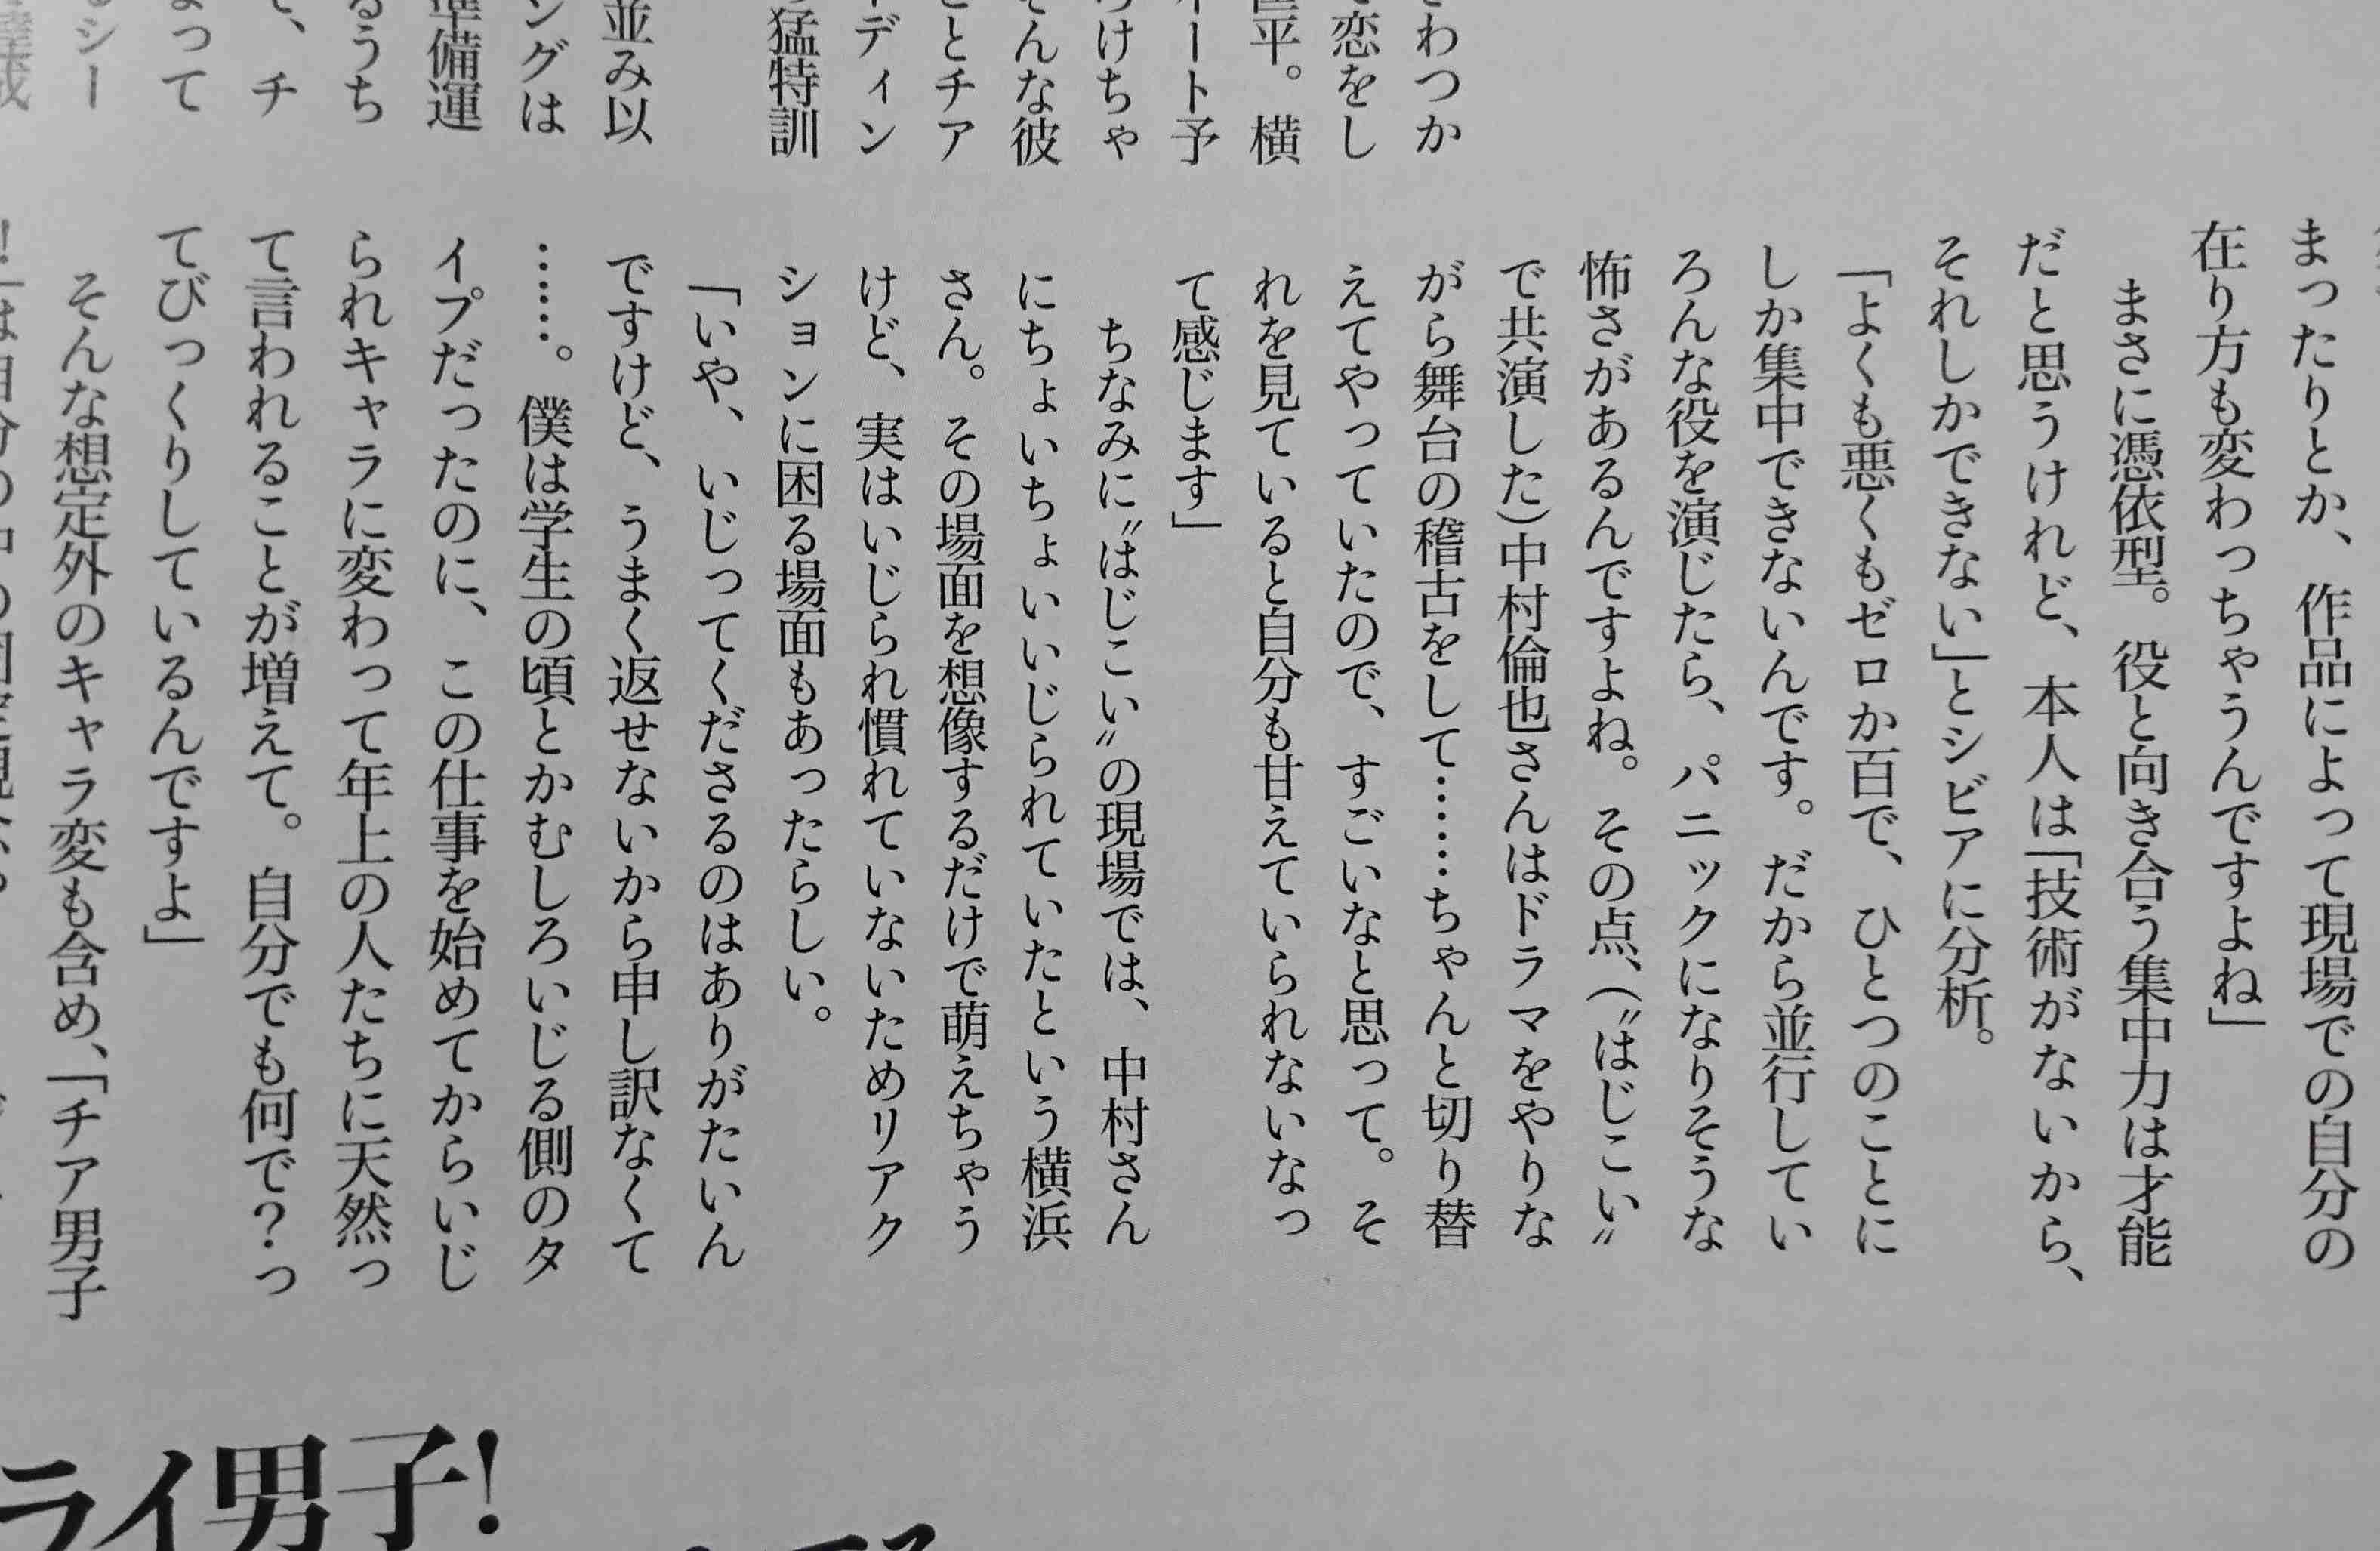 わつか
恋をし
平。横
ート予
けちゃ
んな彼
とチア
ディン
猛特訓
並み以
ングは
準備運
うち
、チ
って
シー
まったりとか、作品によって現場での自分の
在り方も変わっちゃうんですよね」
まさに憑依型。役と向き合う集中力は才能
だと思うけれど、本人は「技術がないから、
それしかできない」とシビアに分析。
「よくも悪くもゼロか百で、ひとつのことに
しか集中できないんです。だから並行してい
ろんな役を演じたら、パニックになりそうな
怖さがあるんですよね。その点、(〝はじこい〟
で共演した)中村倫也さんはドラマをやりな
がら舞台の稽古をして……ちゃんと切り替
えてやっていたので、すごいなと思って。そ
れを見ていると自分も甘えていられないなっ
て感じます」
ちなみに〝はじこい〟の現場では、中村さん
にちょいちょいいじられていたという横浜
さん。その場面を想像するだけで萌えちゃう
けど、実はいじられ慣れていないためリアク
ションに困る場面もあったらしい。
「いや、いじってくださるのはありがたいん
ですけど、うまく返せないから申し訳なくて
……。僕は学生の頃とかむしろいじる側のタ
イプだったのに、この仕事を始めてからいじ
られキャラに変わって年上の人たちに天然っ
て言われることが増えて。自分でも何で?っ
てびっくりしているんですよ」
そんな想定外のキャラ変も含め、「チア男子
ライ男子!